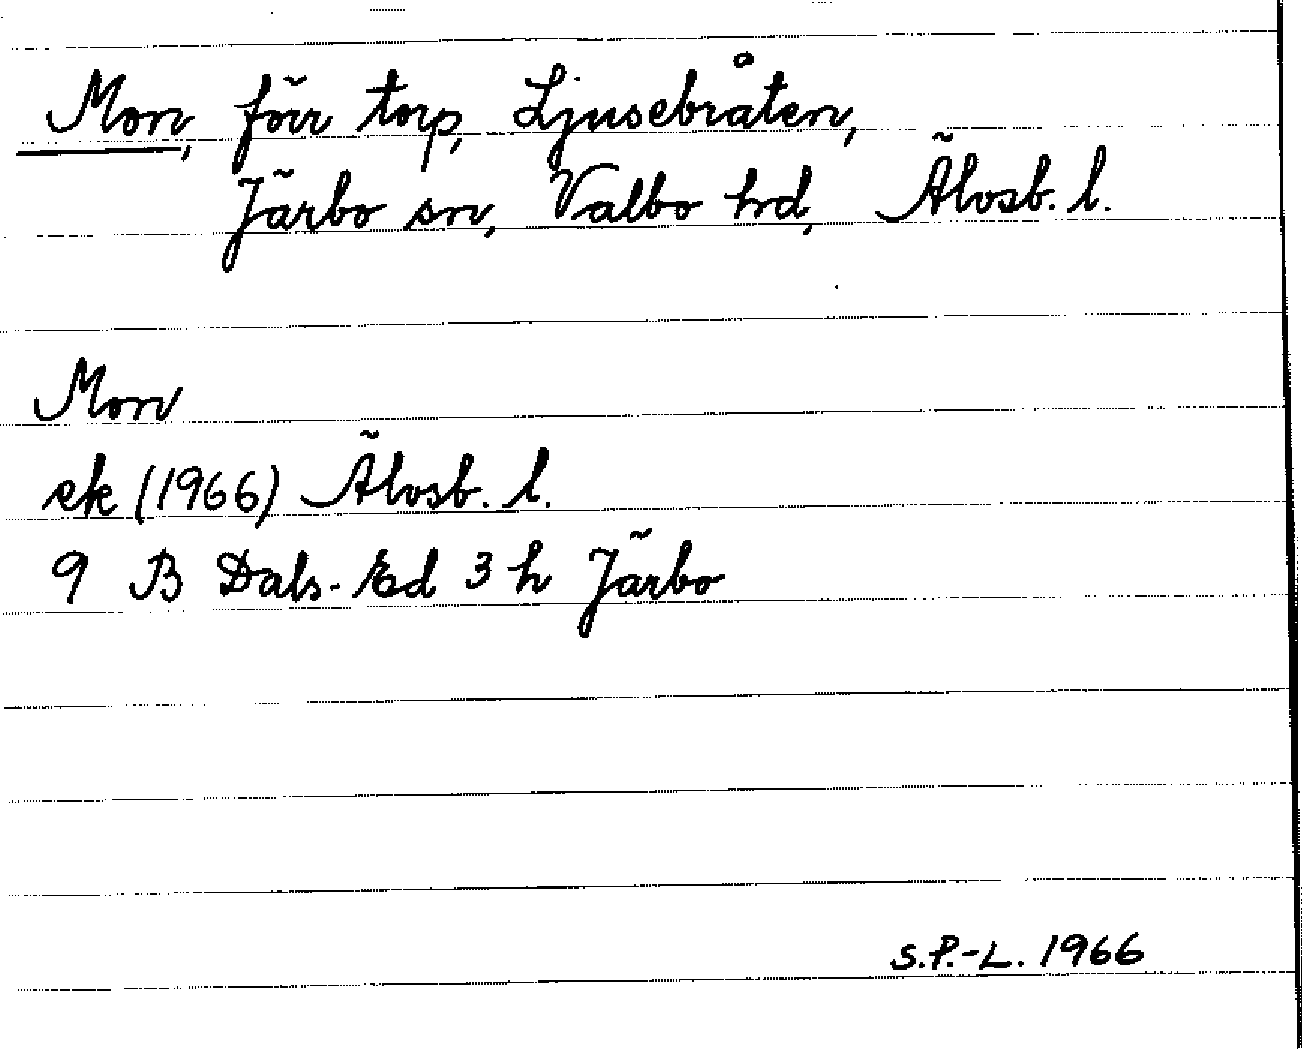 Mon, förr torp, Ljusebråten,
Järbo sn, Valbo hd, Älvsb. l.
Mon
ek (1966) Älvsb. l.
9 B Dals-Ed 3 h Järbo
S.P.-L. 1966